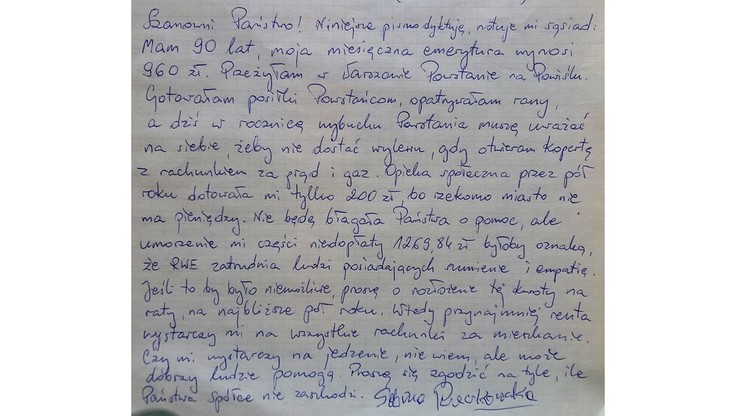 Szanowni Państwo! Niniejsze pismo dyktuję, notuje mi sąsiad:
Mam 90 lat, moja miesięczna emerytura wynosi
960 zł. Przeżyłam w Warszawie Powstanie na Powiślu.
Gotowałam posiłki Powstańcom, opatrywałam rany,
a dziś w rocznicę wybuchu Powstania muszę uważać
na siebie, żeby nie dostać wylewu, gdy otwieram kopertę
z rachunkiem za prąd i gaz. Opieka społeczna przez pół
roku dotowała mi tylko 200 zł, bo rzekomo miasto nie
ma pieniędzy. Nie będę błagała Państwa o pomoc, ale
umorzenie mi części niedopłaty 1269,84 zł byłoby oznaką,
że RWE zatrudnia ludzi posiadających sumienie i empatię.
Jeśli to by było niemożliwe, proszę o rozłożenie tej kwoty na
raty, na najbliższe pół roku. Wtedy przynajmniej renta
wystarczy mi na wszystkie rachunki za mieszkanie.
Czy mi wystarczy na jedzenie, nie wiem, ale może
dobrzy ludzie pomogą. Proszę się zgodzić na tyle, ile
Państwa spółce nie zaszkodzi.